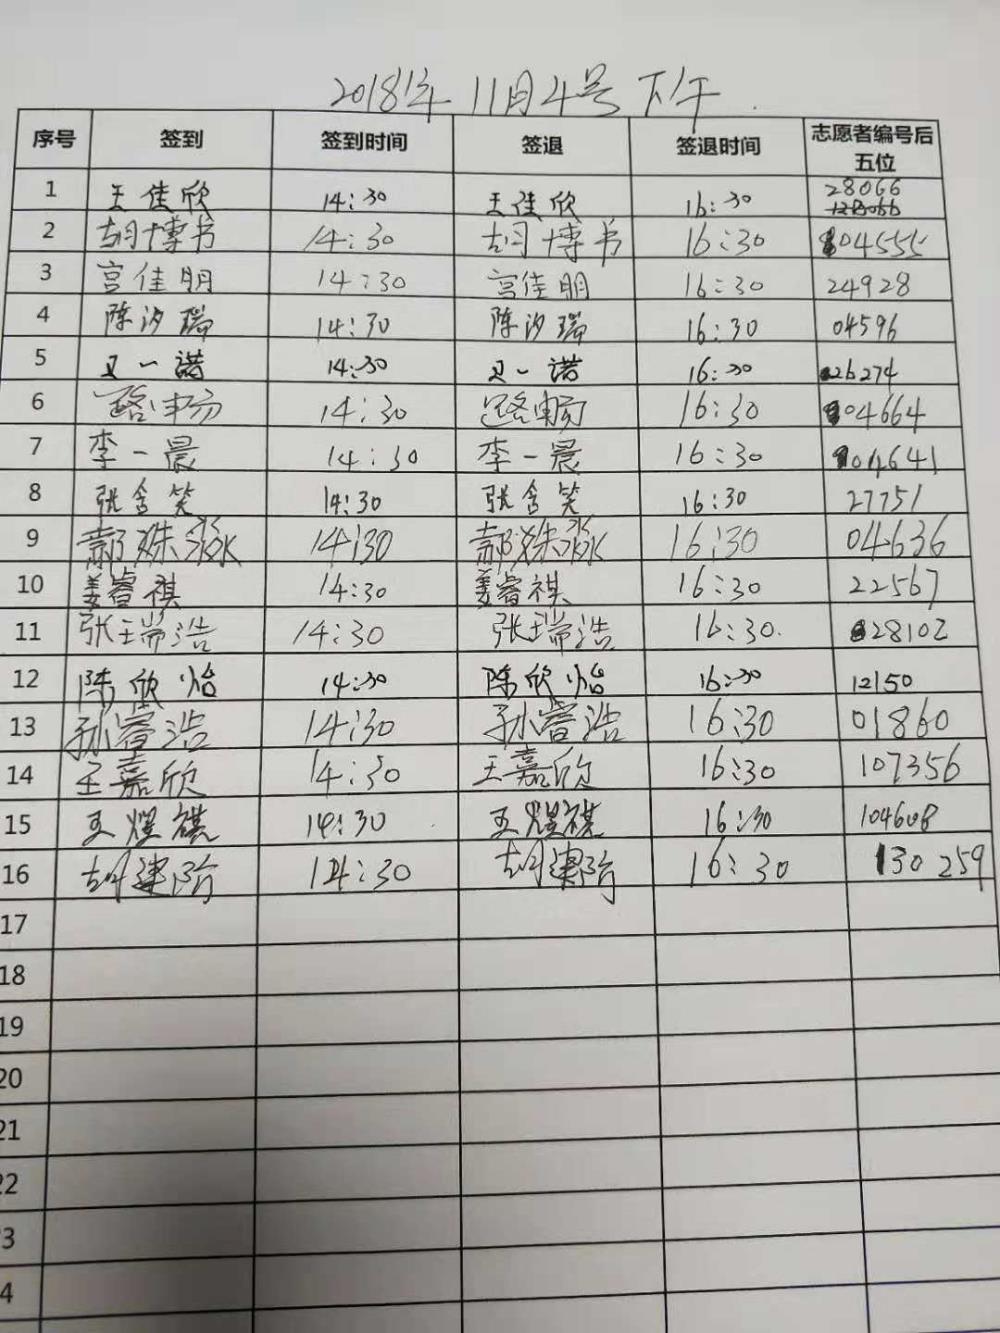 2018年 11月4号 下午
序号 签到 签到时间 签退 签退时间 志愿者编号后五位
1 王佳欣 14:30 王佳欣 16:30 28066
2 胡博书 14:30 胡博书 16:30 04555
3 宫佳明 14:30 宫佳明 16:30 24928
4 陈汐瑞 14:30 陈汐瑞 16:30 04596
5 又一诺 14:30 又一诺 16:30 26274
6 路畅 14:30 路畅 16:30 04664
7 李一晨 14:30 李一晨 16:30 04641
8 张含笑 14:30 张含笑 16:30 27751
9 14:30 16:30 04636
10 姜睿祺 14:30 姜睿祺 16:30 22567
11 张瑞浩 14:30 张瑞浩 16:30 28102
12 陈欣怡 14:30 陈欣怡 16:30 12150
13 孙睿浩 14:30 孙睿浩 16:30 01860
14 王嘉欣 14:30 王嘉欣 16:30 107356
15 王煜祺 14:30 王煜祺 16:30 104608
16 胡建阶 14:30 胡建阶 16:30 130259
17
18
19
20
21
22
3
4